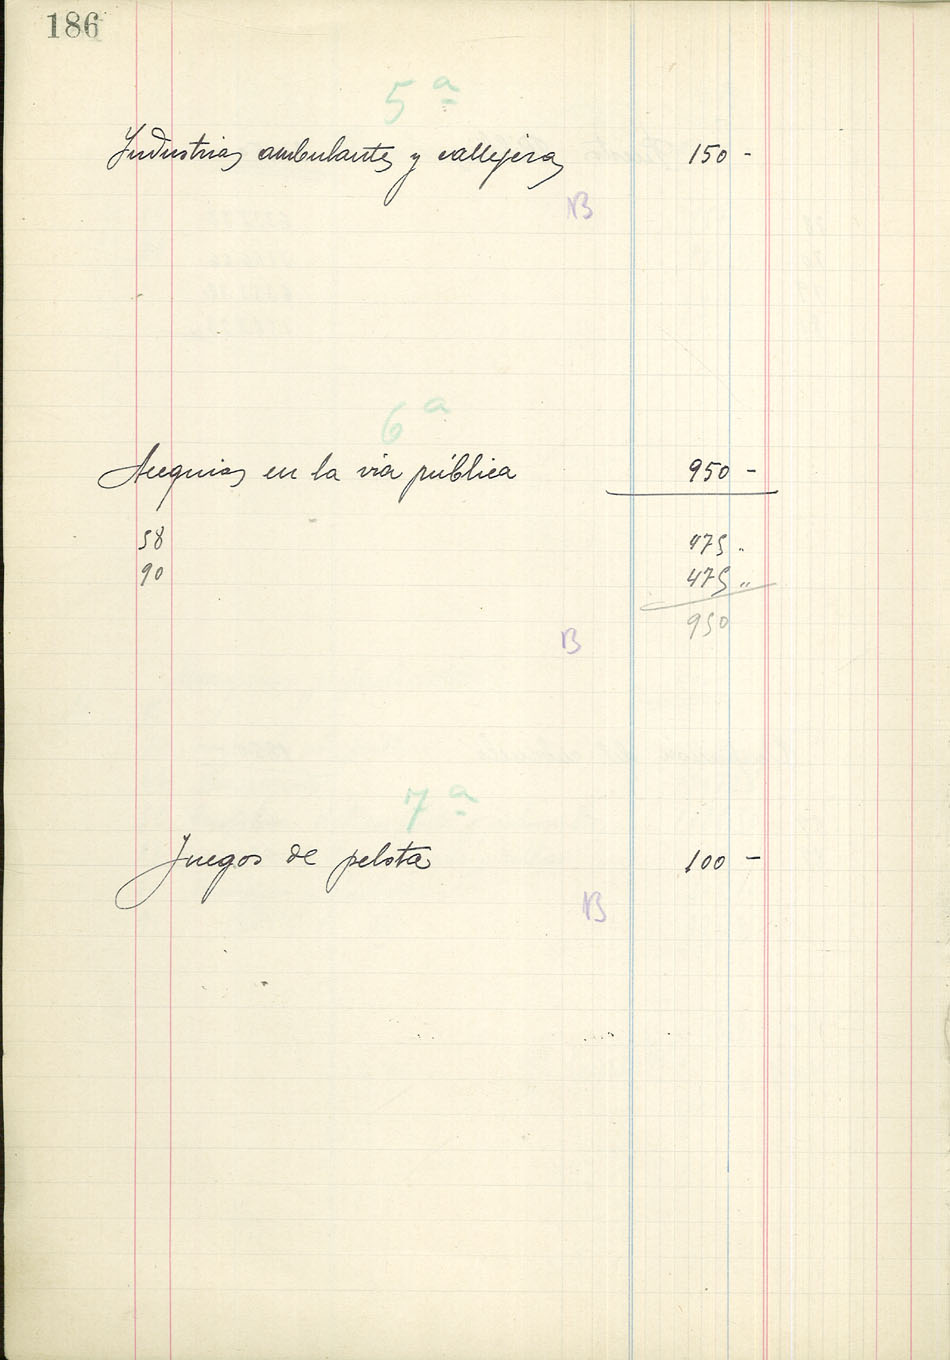 186
5ª
Industrias ambulantes y callejeras 150 -
B
6ª
Acequias en la via pública 950 -
58 475 "
90 475 "
950
B
7ª
Juegos de pelota 100 -
B